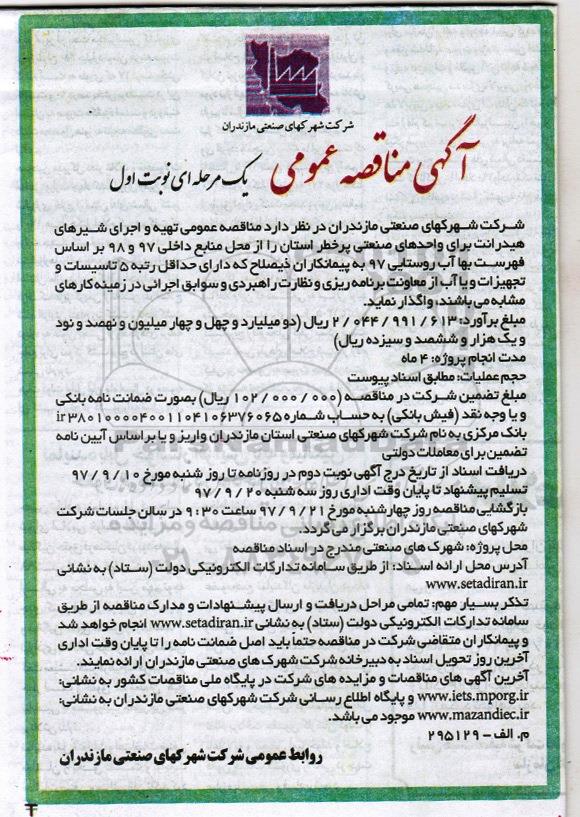 شرکت شهرکهای صنعتی مازندران
آگهی مناقصه عمومی یک مرحله ای نوبت اول
شرکت شهرکهای صنعتی مازندران در نظر دارد مناقصه عمومی تهیه و اجرای شیرهای
هیدرانت برای واحدهای صنعتی پرخطر استان را از محل منابع داخلی ۹۷ و ۹۸ بر اساس
فهرست بها آب روستایی ۹۷ به پیمانکاران ذیصلاح که دارای حداقل رتبه ۵ تاسیسات و
تجهیزات و یا آب از معاونت برنامه ریزی و نظارت راهبردی و سوابق اجرائی در زمینه کارهای
مشابه می باشند، واگذار نماید.
مبلغ برآورد: ۲/۰۴۴/۹۹۱/۶۱۳ ریال (دو میلیارد و چهل و چهار میلیون و نهصد و نود
و یک هزار و ششصد و سیزده ریال)
مدت انجام پروژه: ۴ ماه
حجم عملیات: مطابق اسناد پیوست
مبلغ تضمین شرکت در مناقصه (۱۰۲/۰۰۰/۰۰۰ ریال) بصورت ضمانت نامه بانکی
و یا وجه نقد (فیش بانکی) به حساب شماره ir۳۸۰۱۰۰۰۰۴۰۰۱۱۰۴۱۰۶۳۷۶۰۶۵
بانک مرکزی به نام شرکت شهرکهای صنعتی استان مازندران واریز و یا بر اساس آیین نامه
تضمین برای معاملات دولتی
دریافت اسناد از تاریخ درج آگهی نوبت دوم در روزنامه تا روز شنبه مورخ ۹۷/۹/۱۰
تسلیم پیشنهاد تا پایان وقت اداری روز سه شنبه ۹۷/۹/۲۰
بازگشایی مناقصه روز چهارشنبه مورخ ۹۷/۹/۲۱ ساعت ۹:۳۰ در سالن جلسات شرکت
شهرکهای صنعتی مازندران برگزار می گردد.
محل پروژه: شهرک های صنعتی مندرج در اسناد مناقصه
آدرس محل ارائه اسناد: از طریق سامانه تدارکات الکترونیکی دولت (ستاد) به نشانی
www.setadiran.ir
تذکر بسیار مهم: تمامی مراحل دریافت و ارسال پیشنهادات و مدارک مناقصه از طریق
سامانه تدارکات الکترونیکی دولت (ستاد) به نشانی www.setadiran.ir انجام خواهد شد
و پیمانکاران متقاضی شرکت در مناقصه حتماً باید اصل ضمانت نامه را تا پایان وقت اداری
آخرین روز تحویل اسناد به دبیرخانه شرکت شهرک های صنعتی مازندران ارائه نمایند.
آخرین آگهی های مناقصات و مزایده های شرکت در پایگاه ملی مناقصات کشور به نشانی:
www.iets.mporg.ir و پایگاه اطلاع رسانی شرکت شهرکهای صنعتی مازندران به نشانی:
www.mazandiec.ir موجود می باشد.
م. الف - ۲۹۵۱۲۹
روابط عمومی شرکت شهرکهای صنعتی مازندران